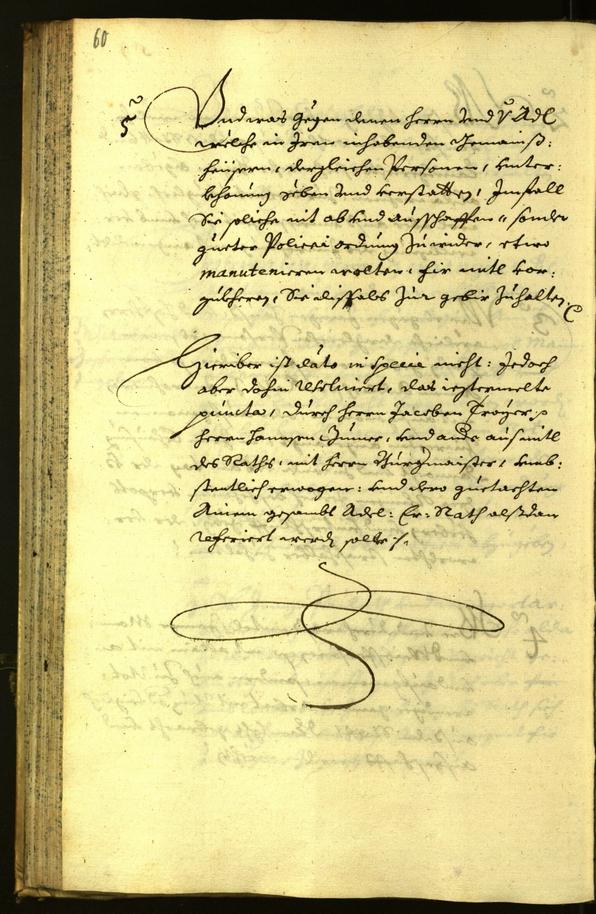 60
5
Und was gegen denen Herrn und v: Adl
welche in Iren inhabenden Gemainß:
heüsern, dergleichen Personen, unter:
geben und verstatten, Imfall
Sie soliche nit ab und ausschaffen, sonder
gueter Policei ordnung zuwider, etwo
manutenieren wolten, fir mitl vor:
zukheren, Sie dißfals zur gebir zuhalten,
Hieriber ist dato in specie nicht: Jedoch
aber dahin resolviert, das ieztermelte
puncta, durch Herrn Jacoben Troyer:
Herrn Hannsen und ande ausmitl
des Raths, mit Herrn Burgmaister,
erwogen: und dero guetachten
Ainem gesambt Adel: Er: Rath alßdan
referiert werdn solle